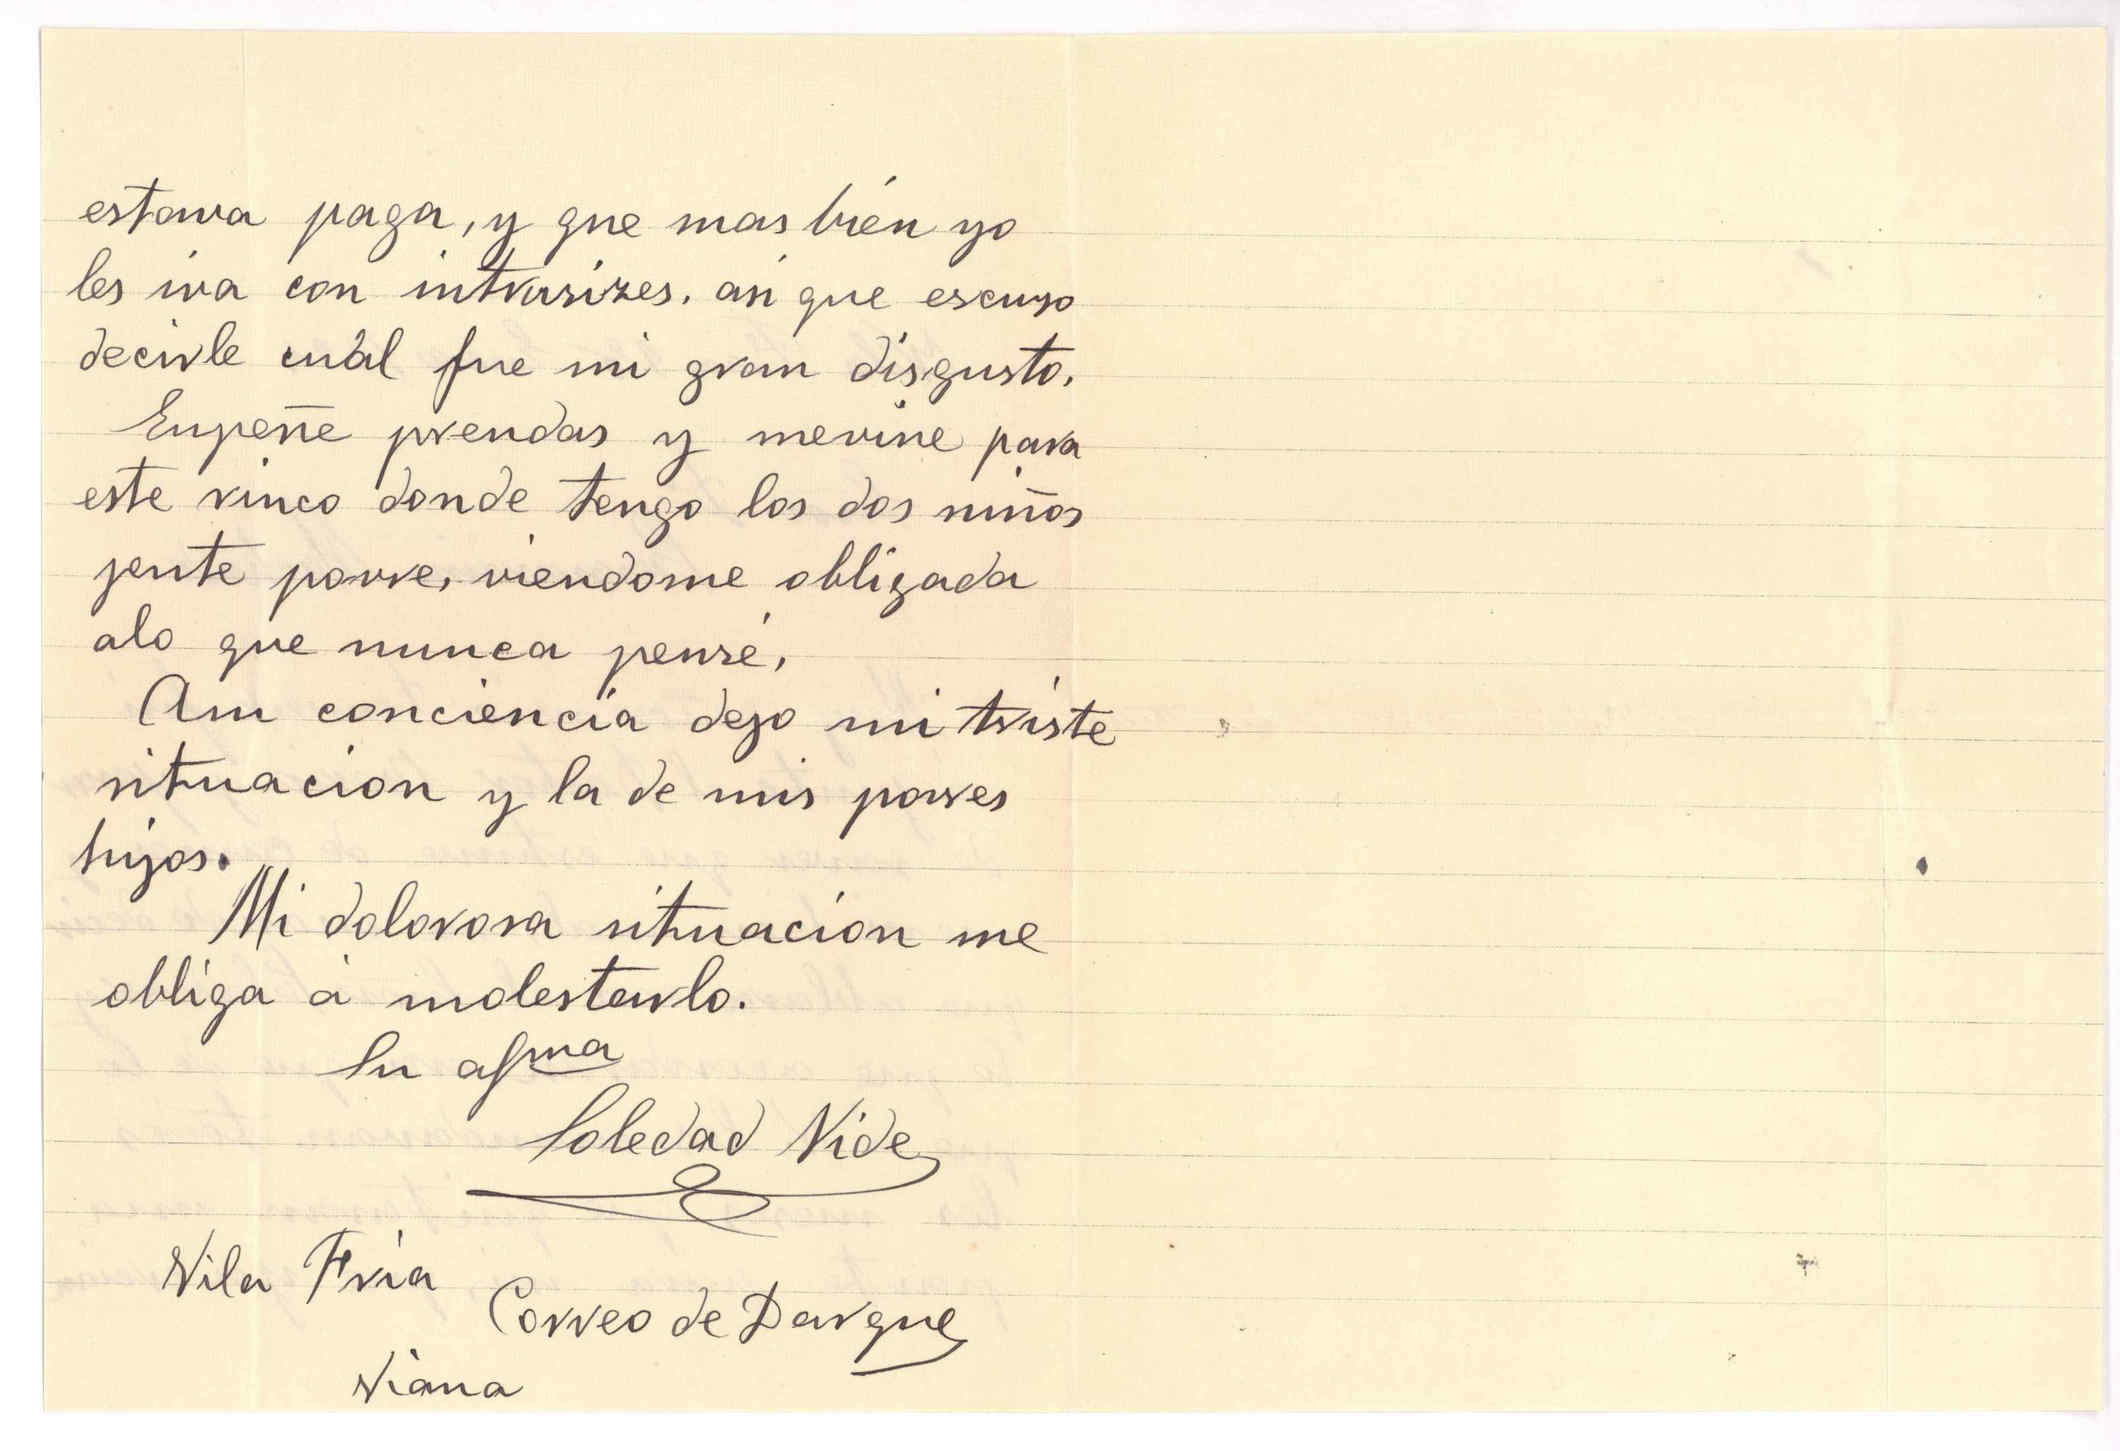 estava paga, y que mas bién yo
les iva con intrusizes. asi que escuso
decirle cuál fue mi gran disgusto.
Enpeñe prendas y mevine para
este rinco donde tengo los dos niños
jente povre, viendome obligada
alo que nunca pensé,
Asu conciencia dejo mi triste
situacion y la de mis povres
hijos.
Mi dolorosa situación me
obliga á molestarlo.
Su afma
Soledad Vide
Vila Fria
Correo de Darque
Viana